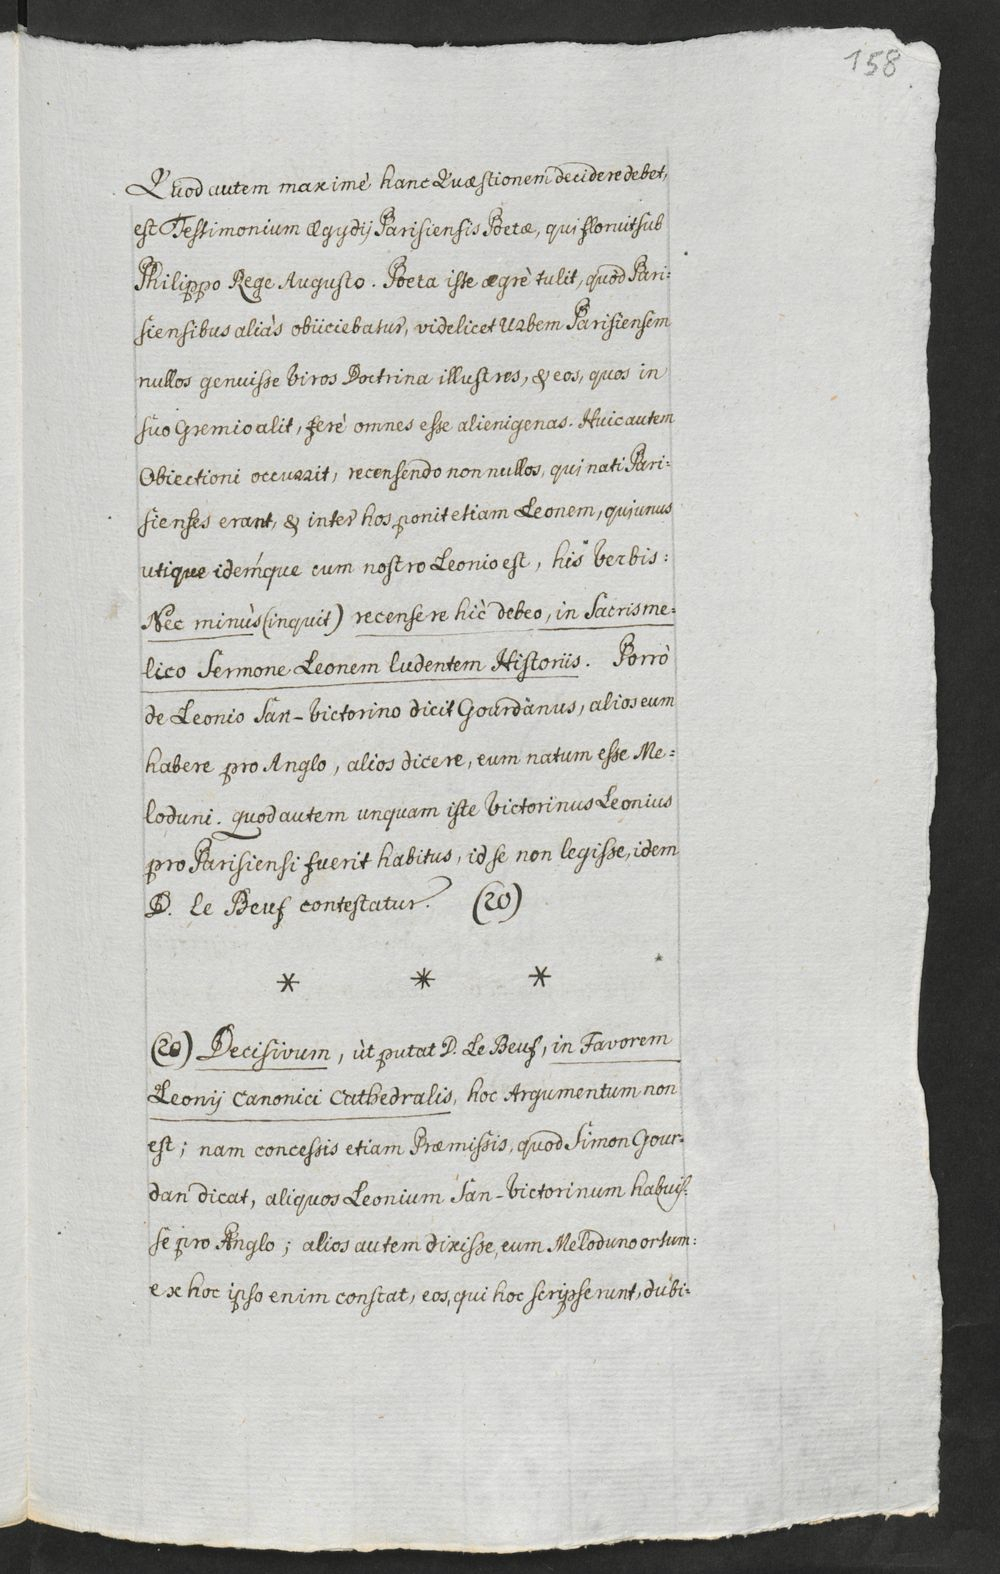 158
Quod autem maximè hanc Quæstionem decidere debet,
est Testimonium Ægydij Parisiensis Poetæ, qui floruit sub
Philippo Rege Augusto. Poeta iste ægrè tulit, quod Pari:
siensibus aliàs obiiciebatur, videlicet Urbem Parisiensem
nullos genuisse viros Doctrina illustres, & eos, quos in
suo Gremio alit, ferè omnes esse alienigenas. Huic autem
Obiectioni occurrit, recensendo nonnullos, qui nati Pari:
sienses erant, & inter hos ponit etiam Leonem, qui unus
utique idemque cum nostro Leonio est, his verbis:
Nec minùs (inquit) recensere hìc debeo, in Sacris me:
lico Sermone Leonem ludentem Historiis. Porrò
de Leonio San-Victorino dicit Gourdanus, alios eum
habere pro Anglo, alios dicere, eum natum esse Me:
loduni. quod autem unquam iste Victorinus Leonius
pro Parisiensi fuerit habitus, id se non legisse, idem
D. Le Beuf contestatur. (20)
* * *
(20) Decisivum, ùt putat D. Le Beuf, in Favorem
Leonij Canonici Cathedralis, hoc Argumentum non
est; nam concessis etiam Præmissis, quod Simon Gour:
dan dicat, aliquos Leonium San-Victorinum habuis:
se pro Anglo; alios autem dixisse, eum Meloduno ortum:
ex hoc ipso enim constat, eos, qui hoc scripserunt, dubi: